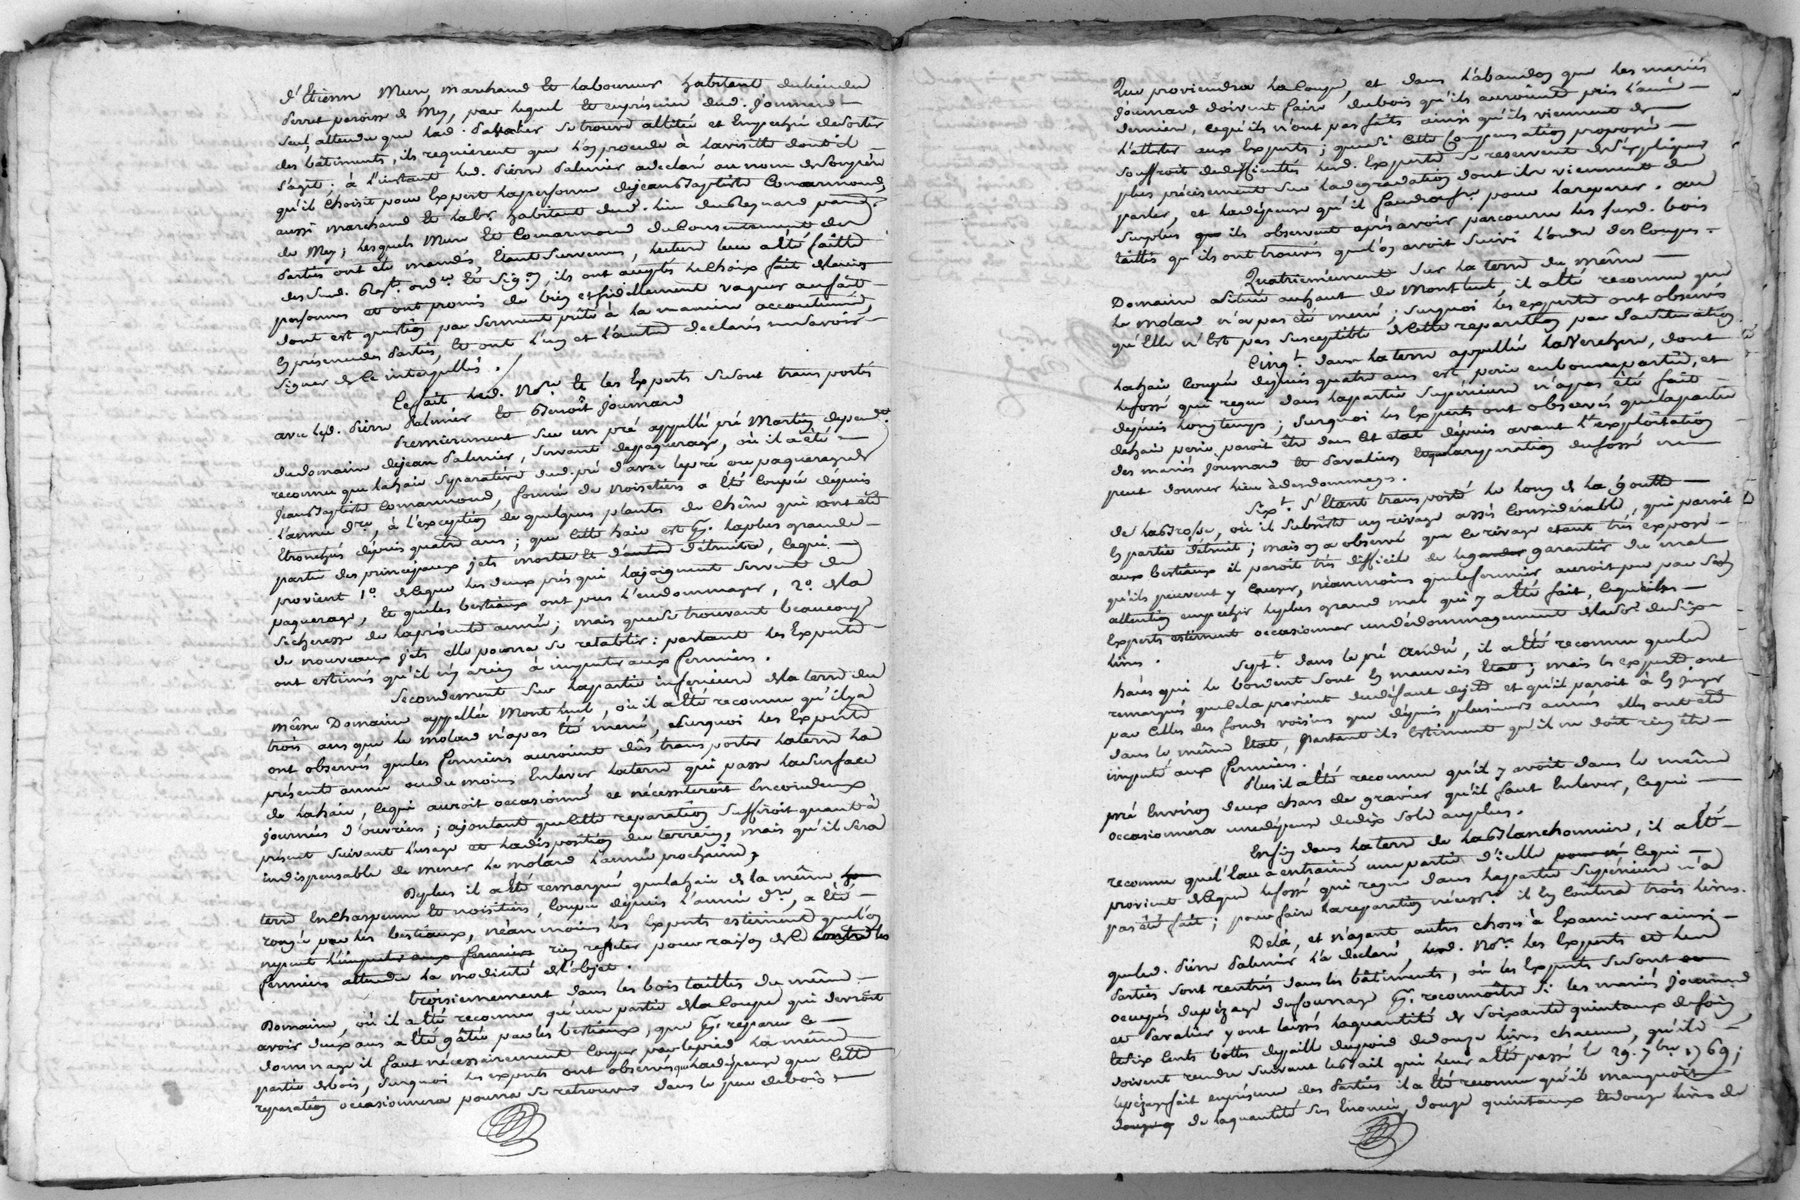 d'Etienne Mure, marchand et laboureur habitant du lieu du
Perret paroisse de Mey, par lequel et en présence dud. Journard
seul, attendu que lad. Pavalier se trouve allitée et empechée de sortir
des bâtiments, ils requièrent que l'on procede à la visitte dont il
s'agit; à l'instant led. Pierre Palmier a declaré au nom de son père
qu'il choisit pour Expert la personne de jean Baptiste Comarmond,
aussi marchand et labr habitant dud. lieu du
de Mey; lesquels Mure et Comarmond du consentement des
Parties ont été mandés, étant survenus, lecture leur a été faitte
des susd. Reqte. ordce. et Sigon, ils ont accepté le choix fait de leurs
personnes et ont promis de bien et fidellement vaquer au fait
dont est question par serment prêté à la maniere accoutumée,
en présence des Parties, et ont l'un et l'autre declarés ne savoir
signer de ce interpellés.
Ce fait led. Nore. et les Experts se sont transportés
avec lesd. Pierre Palmier et Benoît Journard
Premierement sur un pré appellé pré Martin dépendt.
du domaine de jean Palmier, servant de paquerage, où il a été
reconnu que la haie séparative dud. pré d'avec le pré ou paquerage de
Jean Baptiste Comarmond, formée de noisetiers a été coupée depuis
l'année dre, à l'exception de quelques plantes de chêne qui ont été
etronchés depuis quatre ans; que cette haie est la plus grande
partie des principaux jets mortes et d'autres détruites, ce qui
provient 1o. de ce que les deux prés qui la joignent servent de
paquerage, et que les bestiaux ont pu l'endommager, 2o. de la
sécheresse de la présente année; mais que se trouvant beaucoup
de nouveaux jets elle pourra se retablir: partant les Experts
ont estimés qu'il n'y a rien à imputer aux fermiers.
Secondement sur la partie inferieure de la terre du
même Domaine appellée Mont luel, où il a été reconnu qu'il y a
trois ans que le molard n'a pas été mené, surquoi les Experts
ont observés que les fermiers auroient dûs transporter la terre la
présente année ou du moins enlever la terre qui passe la surface
de la haie, ce qui auroit occasionné et nécessiteroit encore deux
journées d'ouvriers; ajoutant que cette reparation suffiroit quant à
présent suivant l'usage et la disposition du terrein, mais qu'il sera
indispensable de mener le molard l'année prochaine.
De plus il a été remarqué que la haie de la même
terre en charpenne et noisetiers, coupée depuis l'année dre, a été
rongée par les bestiaux, néanmoins les Experts estiment que l'on
ne peut l'imputer aux fermiers rien repeter pour raison de ce contre les
fermiers attendu la modicité de l'objet.
troisiemement dans les bois taillis du même
Domaine, où il a été reconnu qu'une partie de la coupe qui devroit
avoir deux ans a été gâtée par les bestiaux, que pr. reparer ce
dommage il faut nécessairement couper par le pied la même
partie de bois, surquoi les experts ont observés que la dépense que cette
reparation occasionnera pourra se retrouver dans le peu de bois
Que proviendra la coupe, et dans l'abandon que les mariés
Journard doivent faire du bois qu'ils auroient pris l'année
derniere, ce qu'ils n'ont pas faits ainsi qu'ils viennent de
l'attester aux Experts; que si cette compensation proposée
souffroit de difficultés lesd. Experts se reservent de s'expliquer
plus précisement sur la degradation dont ils viennent de
parler, et la dépense qu'il faudra faire pour la reparer. au
surplus ils observent après avoir parcouru les susd. bois
taillis qu'ils ont trouvés que l'on avoit suivi l'ordre des coupes.
Quatriemement sur la terre du même
Domaine située au haut de Montluel, il a été reconnu que
le molard n'a pas été mené; surquoi les experts ont observés
qu'elle n'est pas susceptible de cette reparation par sa situation
Cinqt. dans la terre appellée la Verchere, dont
la haie coupée depuis quatre ans est périe en bonne partie, et
le fossé qui regne dans la partie supérieure n'a pas été fait
depuis longtemps; surquoi les Experts ont observés que la partie
de haie perie paroit être dans cet etat depuis avant l'exploitation
des mariés Journard et Pavalier, et que la reparation du fossé ne
peut donner lieu à dédommage.
Sixt. s'étant transporté le long de la goutte
de la Brosse, où il subsiste un rivage assés considerable, qui paroit
en partie détruit; mais on a observé que ce rivage étant très exposé
aux bestiaux il paroit très difficile de le garder garantir du mal
qu'ils peuvent y causer, néanmoins que le fermier auroit pu par son
attention empecher le plus grand mal qui y a été fait, ce que les
Experts estiment occasionner un dédommagement de la se. de six
livres.
Septt. dans le pré André, il a été reconnu que les
haies qui le bordent sont en mauvais Etat; mais les experts ont
remarqués que cela provient du défaut de jets et qu'il paroit à en juger
par celles des fonds voisins que depuis plusieurs années elles ont été
dans le même Etat, partant ils estiment qu'il ne doit rien être
imputé aux fermiers.
Plus il a été reconnu qu'il y avoit dans le même
pré Environ deux chars de gravier qu'il faut Enlever, ce qui
occasionnera une dépense de dix sols au plus.
Enfin dans la terre de la Blanchonniere, il a été
reconnu que l'eau a entrainé une partie d'icelle ce qui
provient de ce que le fossé qui regne dans la partie supérieure n'a
pas été fait; pour faire la reparation nécesse. il en coutera trois livres.
De là, et n'ayant autres choses à Examiner ainsi
que led. Pierre Palmier l'a declaré, led. Nore. les Experts et lesd
Parties sont rentrés dans les bâtiments, où les Experts se sont
occupés du pézage du fourrage pr. reconnoitre si les mariés Journard
et Pavalier y ont laissés la quantité de soixante quintaux de foin
et six cents bottes de paille du poid de douze livres chacune, qu'ils
doivent rendre suivant le bail qui leur a été passé le 29. 7bre 1769;
le pézage fait en présence des Parties il a été reconnu qu'il manquoit
de la quantité sus énoncée, douze quintaux et douze livres de